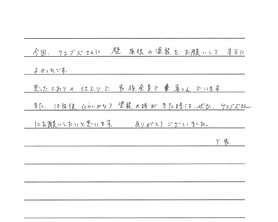 今回、ウェブズさんに 壁 屋根の塗装をお願いして 本当に
よかったです。
思ったとおりの仕上りで 家族全員で 喜こんでいます。
また、10年後(くらいかな?) 塗装の時が きた時は、ぜひ、ウェブズさん
にお願いしたいと思います。 ありがとうございました。
Y 家